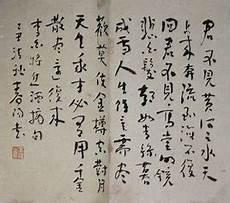 君不見黄河之水天
上来奔流到海不復
回君不見高堂明鏡
悲白髮朝如青絲暮
成雪人生得意須盡
歡莫使金樽空對月
天生我才必有用千金
散盡還復来
李白將進酒摘句